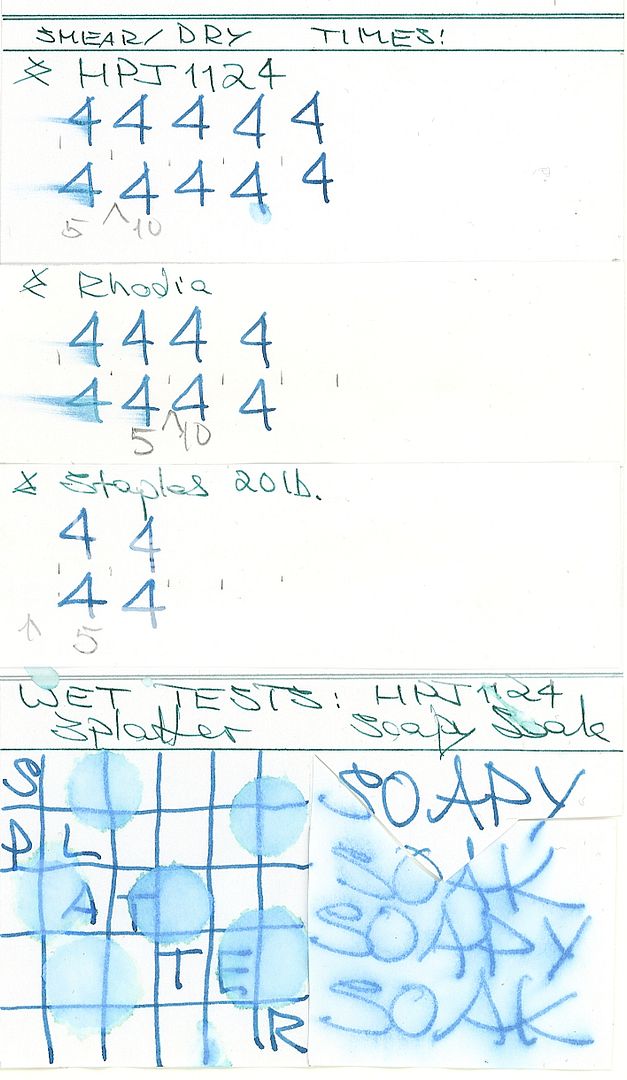 SMEAR/ DRY TIMES!
HPJ1124
4 4 4 4 4
4 4 4 4 4
5 10
Rhodia
4 4 4 4
4 4 4 4
5 10
Staples 20lb.
4 4
4 4
5
WET TESTS: HPJ1124
Splatter Soapy Soak
S
P L
A T
T E
R
SOAPY
SOAK
SOAPY
SOAK